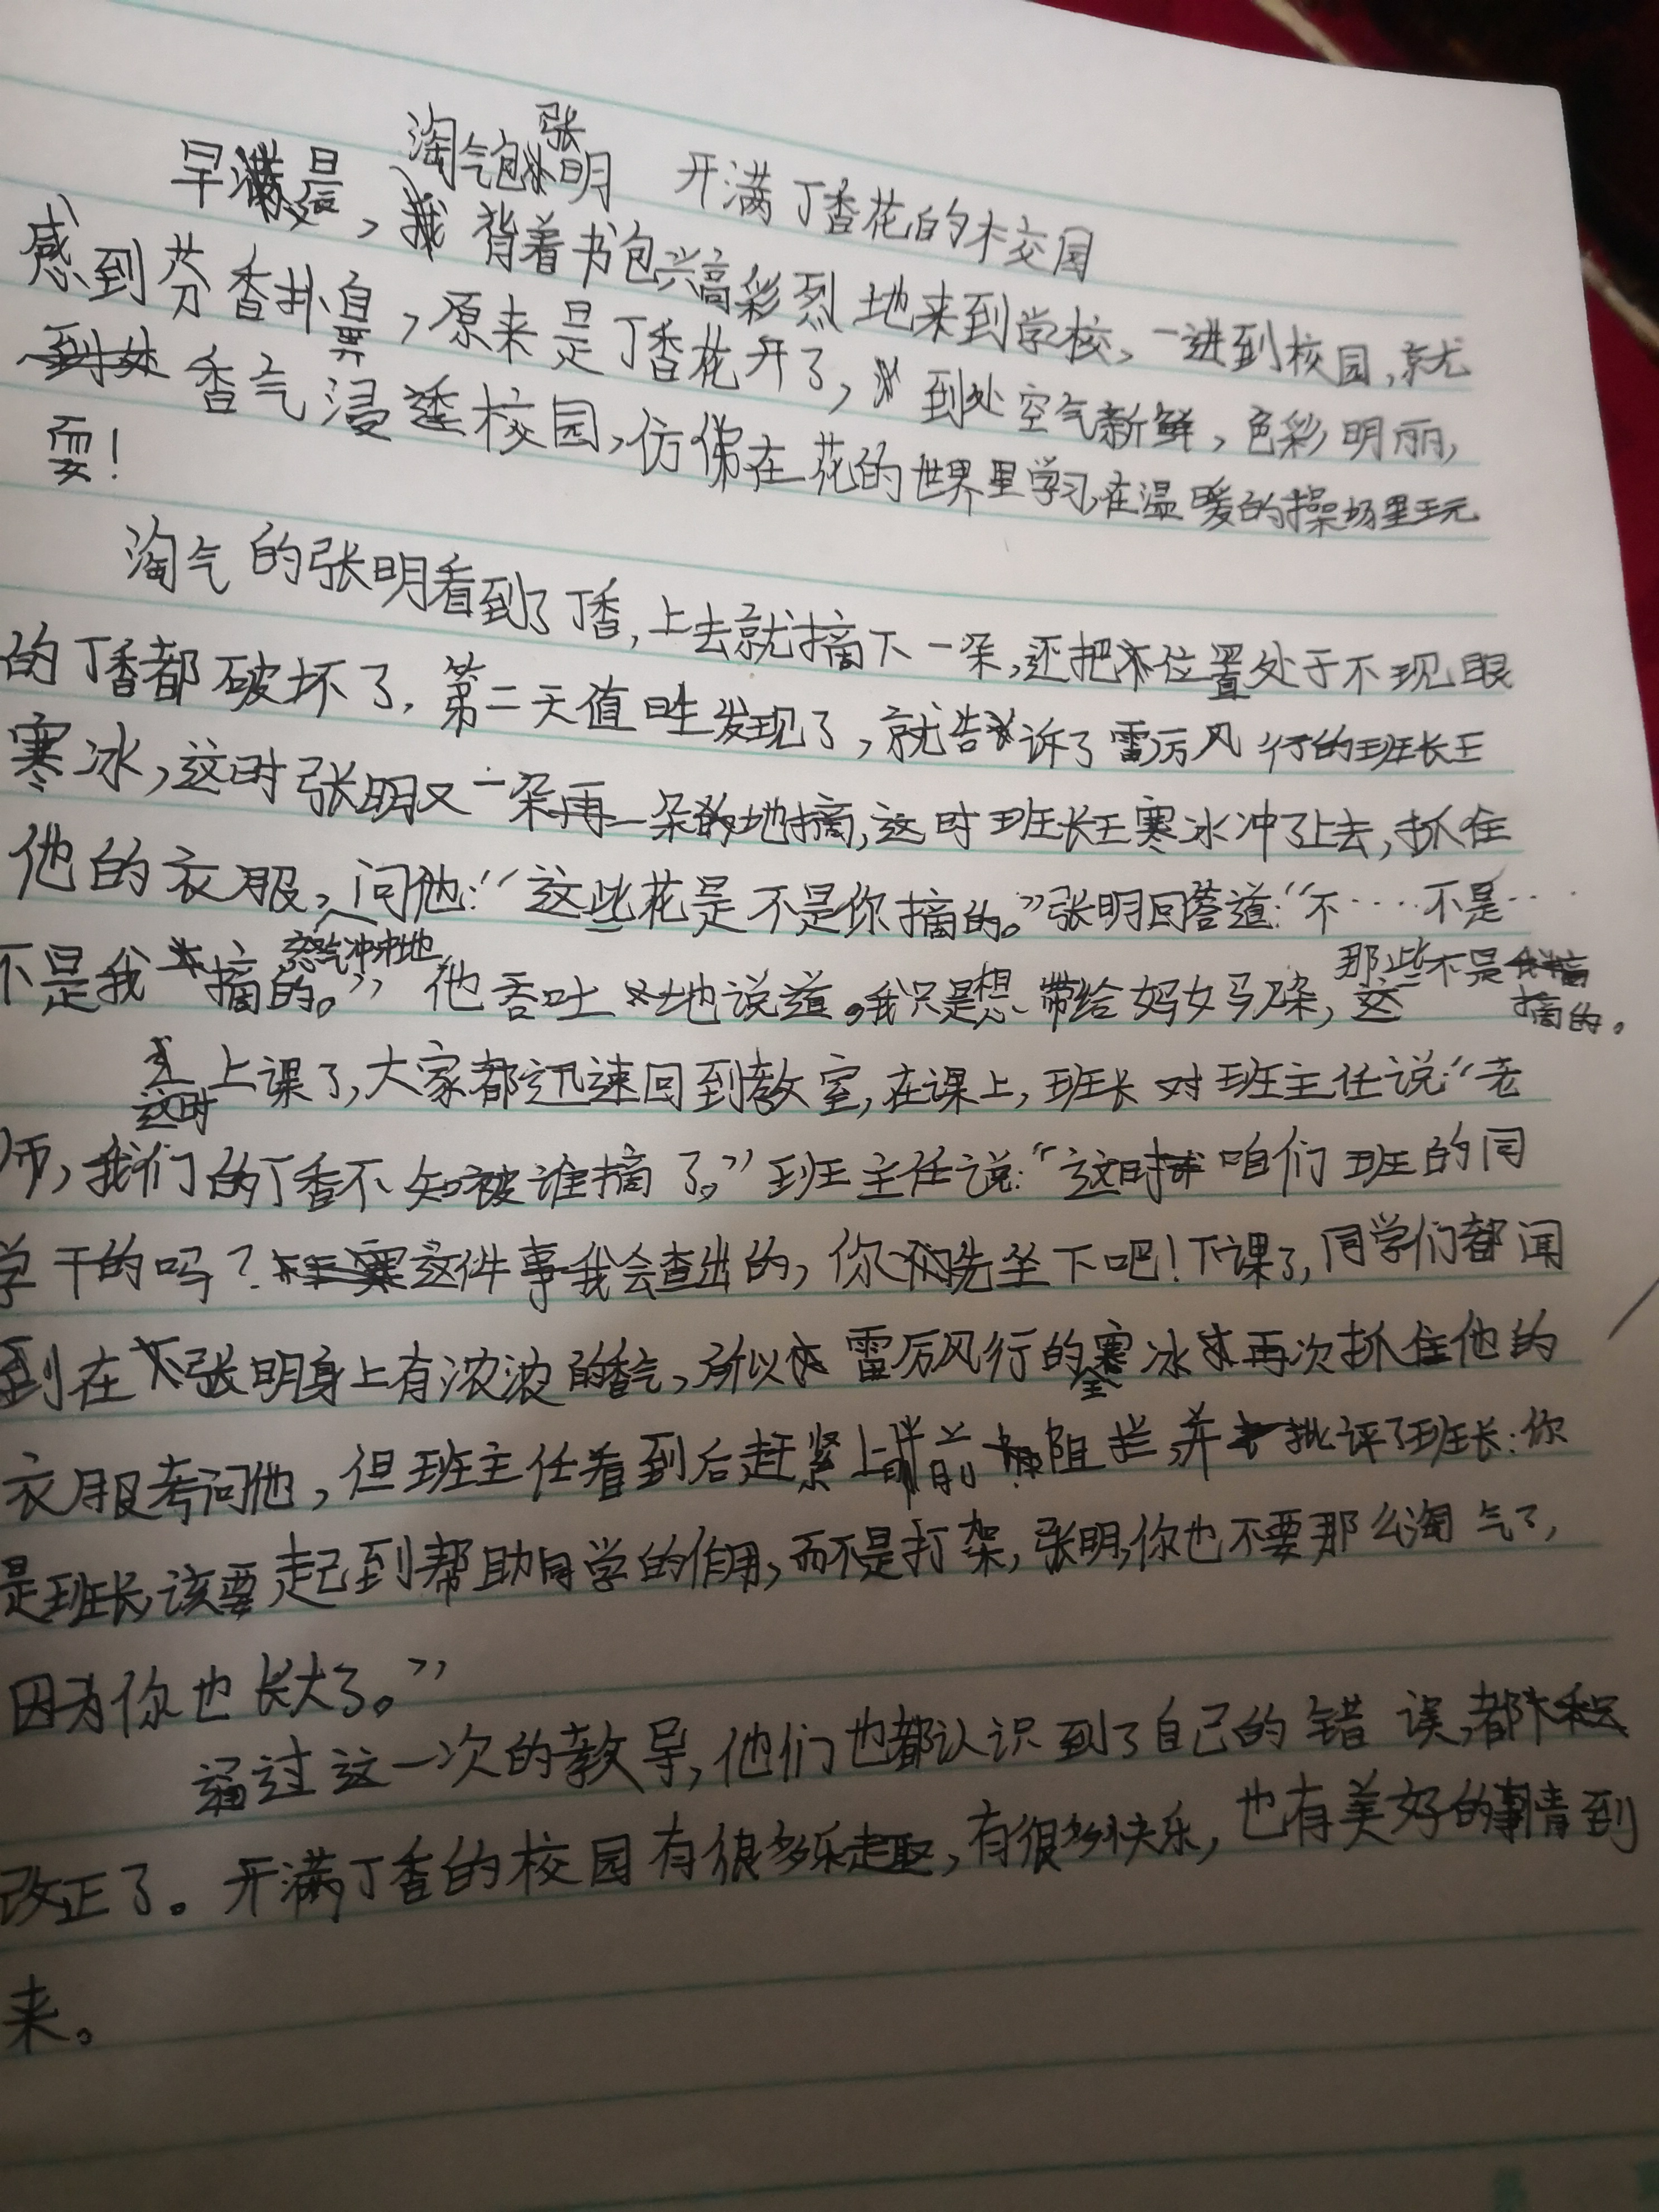 开满丁香花的校园
早晨，淘气包张明背着书包兴高彩烈地来到学校，一进到校园，就
感到芬香扑鼻，原来是丁香花开了，到处空气新鲜，色彩明丽，
香气浸透校园，仿佛在花的世界里学习，在温暖的操场里玩
耍！
淘气的张明看到了丁香，上去就摘下一朵，还把位置处于不现眼
的丁香都破坏了。第二天值日生发现了，就告诉了雷厉风行的班长王
寒冰，这时张明又一朵再一朵地摘，这时班长王寒冰冲了上去，抓住
他的衣服，怒气冲冲地问他：“这些花是不是你摘的。”张明回答道：“不……不是……
不是我摘的。”他吞吐地说道。我只是想带给妈妈一朵，那些不是摘的。
这时上课了，大家都迅速回到教室，在课上，班长对班主任说“老
师，我们的丁香不知被谁摘了。”班主任说：“这时咱们班的同
学干的吗？这件事我会查出的，你先坐下吧！下课了，同学们都闻
到在张明身上有浓浓的香气，所以雷厉风行的寒冰再次抓住他的
衣服考问他，但班主任看到后赶紧上前阻拦，并批评了班长：你
是班长，该要起到帮助同学的作用，而不是打架，张明，你也不要那么淘气了，
因为你也长大了。”
通过这一次的教导，他们也都认识到了自己的错误，都
改正了。开满丁香的校园有很多乐趣，有很多快乐，也有美好的事情到
来。